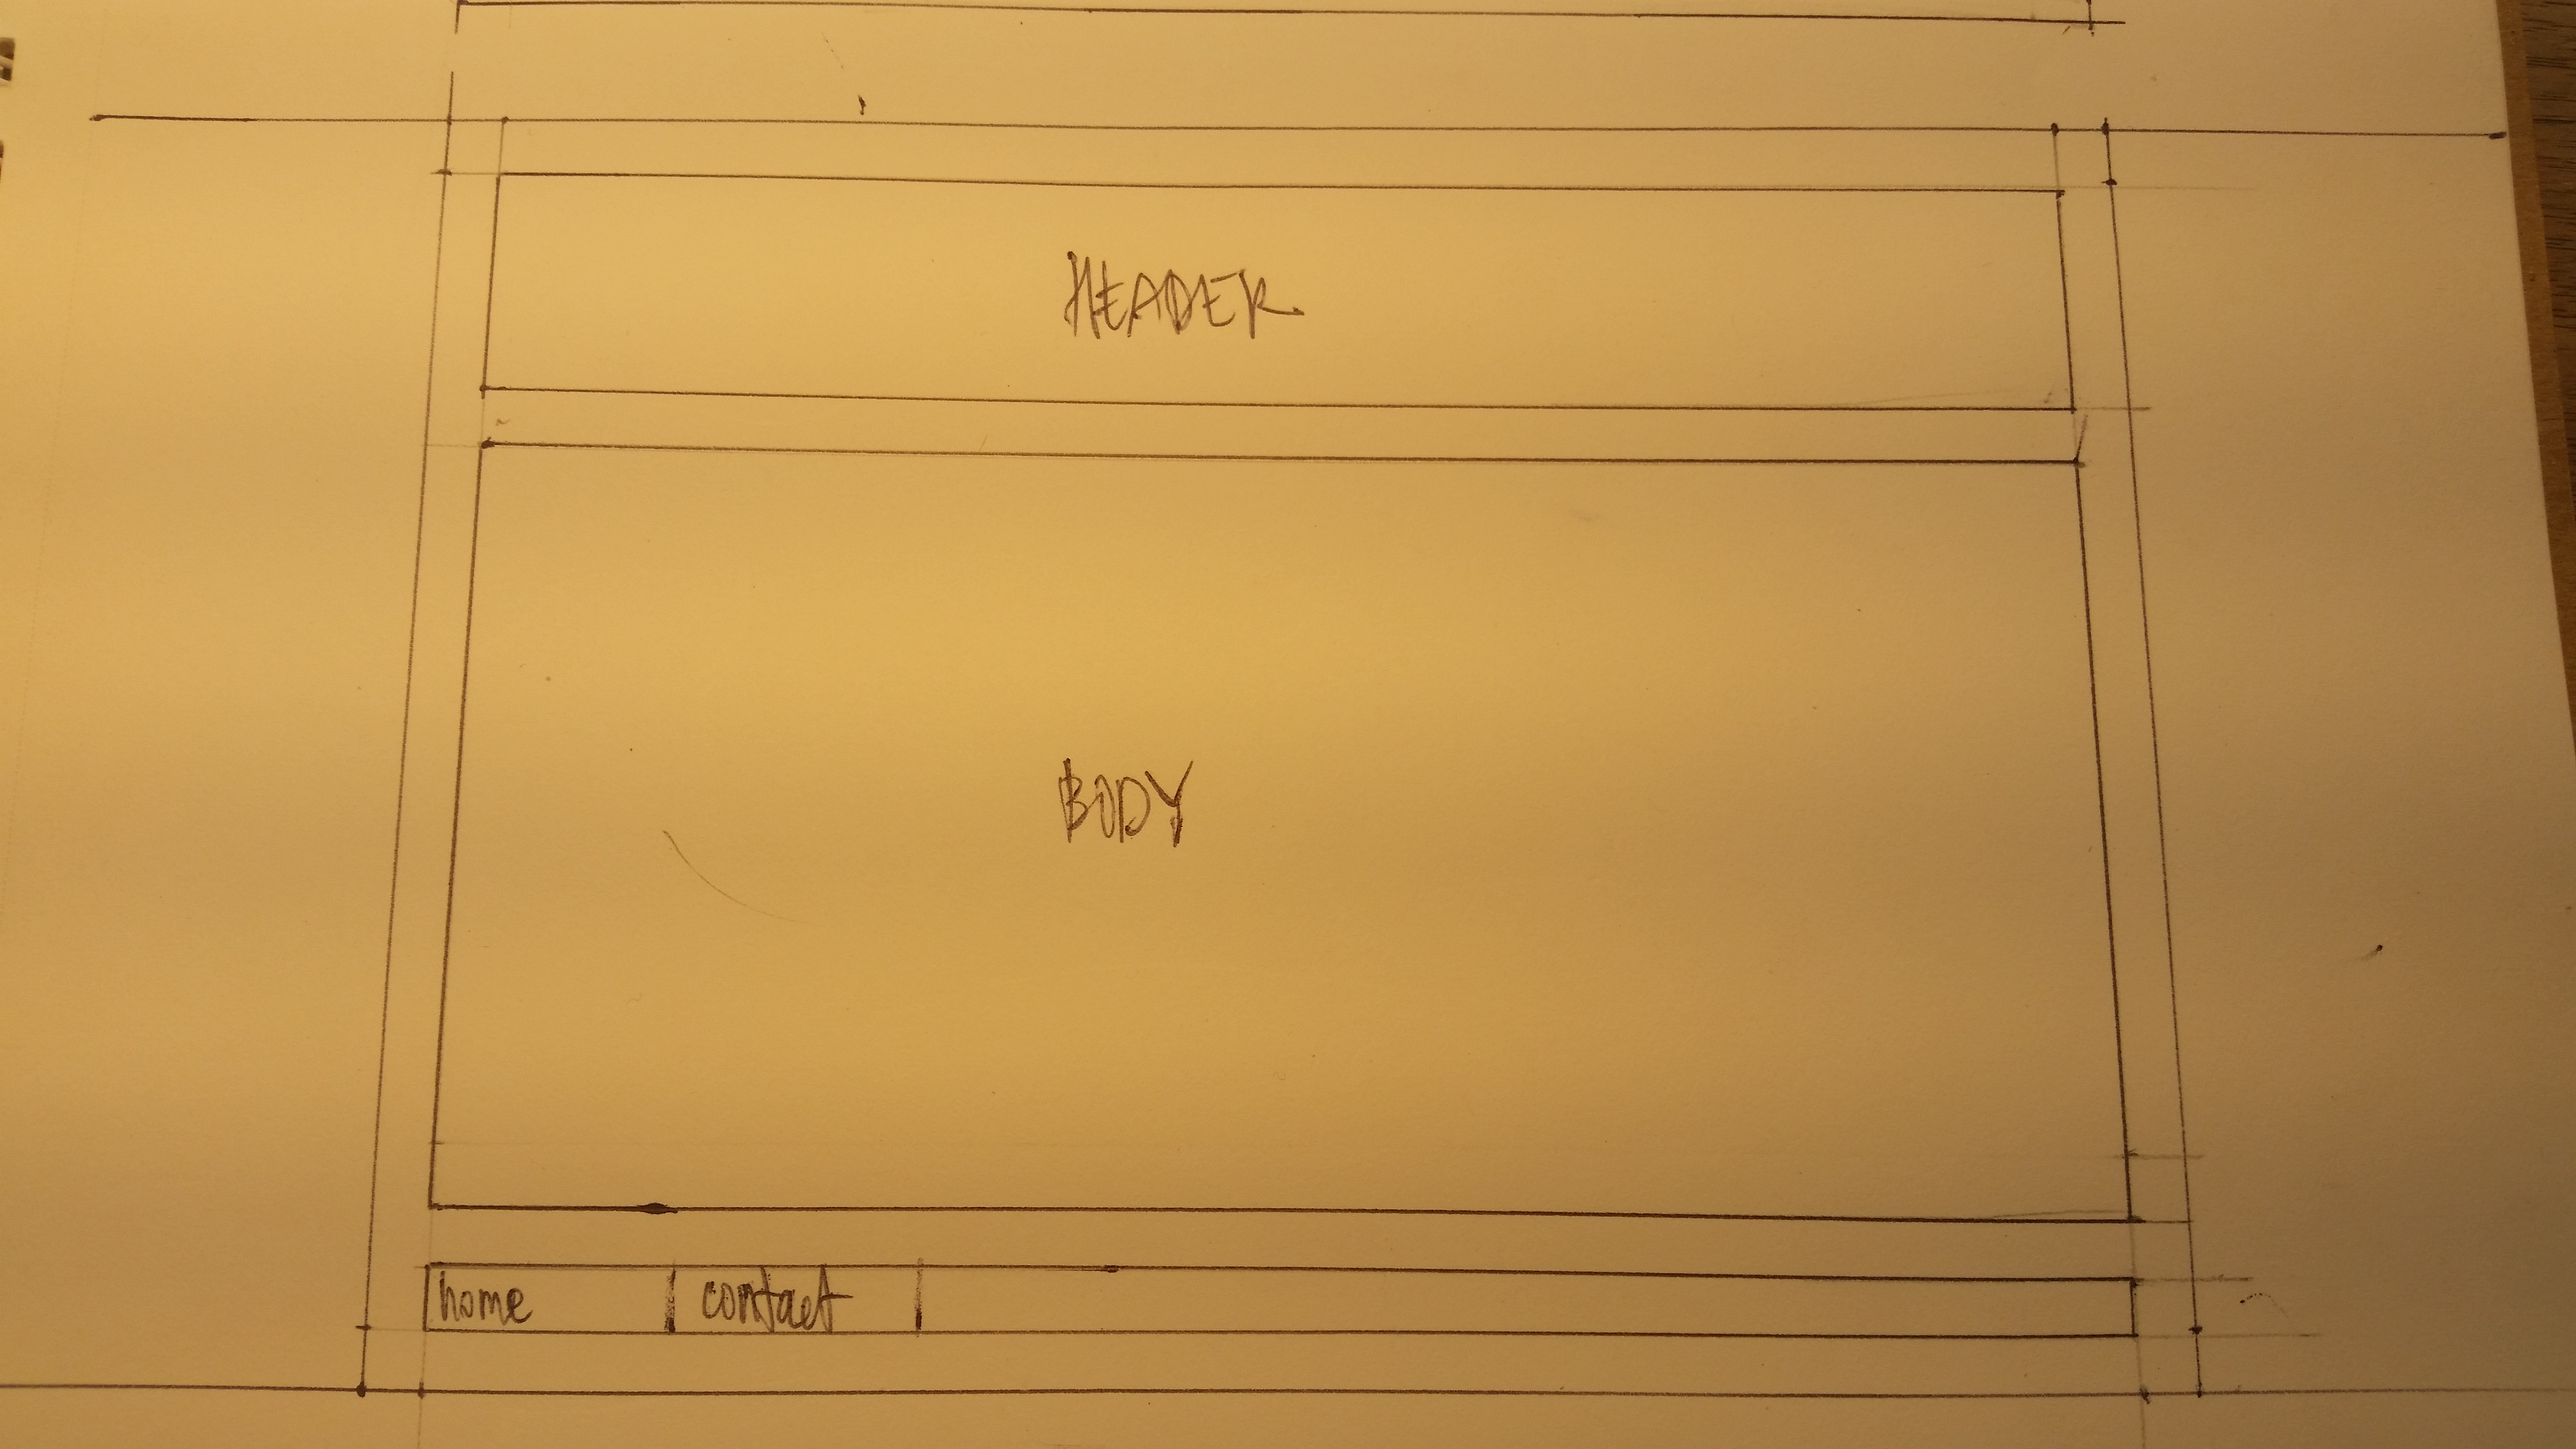 HEADER
BODY
home | contact |